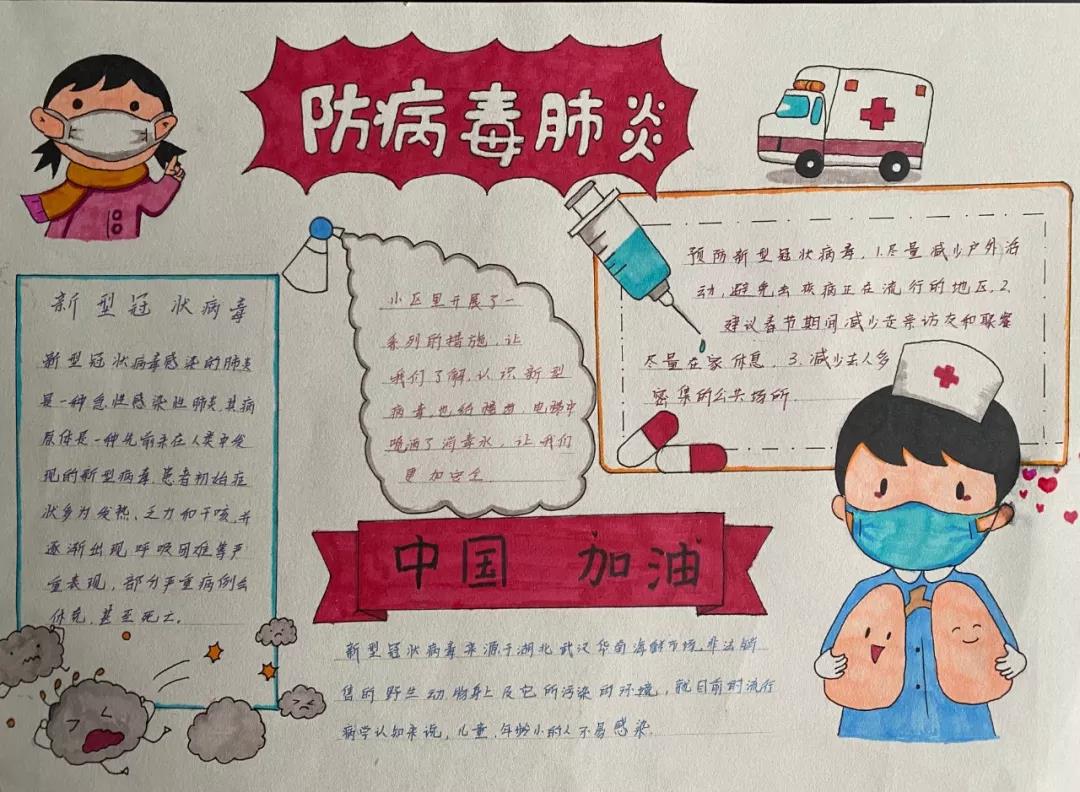 防病毒肺炎
新型冠状病毒
新型冠状病毒感染的肺炎
是一种急性感染性肺炎,其病
原体是一种先前未在人类中发
现的新型病毒.患者初始症
状多为发热、乏力和干咳,并
逐渐出现呼吸困难等严
重表现,部分严重病例会
休克,甚至死亡。
小区里开展了一
系列的措施,让
我们了解,认识新型
病毒,也给楼道,电梯中
喷洒了消毒水,让我们
更加安全.
预防新型冠状病毒,1.尽量减少户外活
动,避免去疾病正在流行的地区.2.
建议春节期间减少走亲访友和聚餐
尽量在家休息. 3.减少去人多
密集的公共场所
中国 加油
新型冠状病毒来源于湖北武汉华南海鲜市场,非法销
售的野生动物身上及它所污染的环境,就目前的流行
病学认知来说,儿童、年龄小的人不易感染.